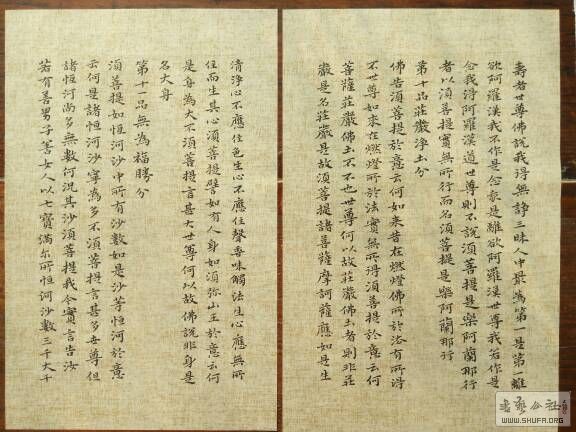 壽者世尊佛說我得無諍三昧人中最為第一是第一離
欲阿羅漢我不作是念我是離欲阿羅漢世尊我若作是
念我得阿羅漢道世尊則不說須菩提是樂阿蘭那行
者以須菩提實無所行而名須菩提是樂阿蘭那行
第十品莊嚴淨土分
佛告須菩提於意云何如來昔在燃燈佛所於法有所得
不世尊如來在燃燈所於法實無所得須菩提於意云何
菩薩莊嚴佛土不不也世尊何以故莊嚴佛土者則非莊
嚴是名莊嚴是故須菩提諸菩薩摩訶薩應如是生
清淨心不應住色生心不應住聲香味觸法生心應無所
住而生其心須菩提譬如有人身如須弥山王於意云何
是身為大不須菩提言甚大世尊何以故佛說非身是
名大身
第十一品無為福勝分
須菩提如恒河沙中所有沙數如是沙等恒河於意
云何是諸恒河沙寧為多不須菩提言甚多世尊但
諸恒河尚多無數何況其沙須菩提我今實言告汝
若有善男子善女人以七寶滿尔所恒河沙數三千大千
WWW.SHUFA.ORG